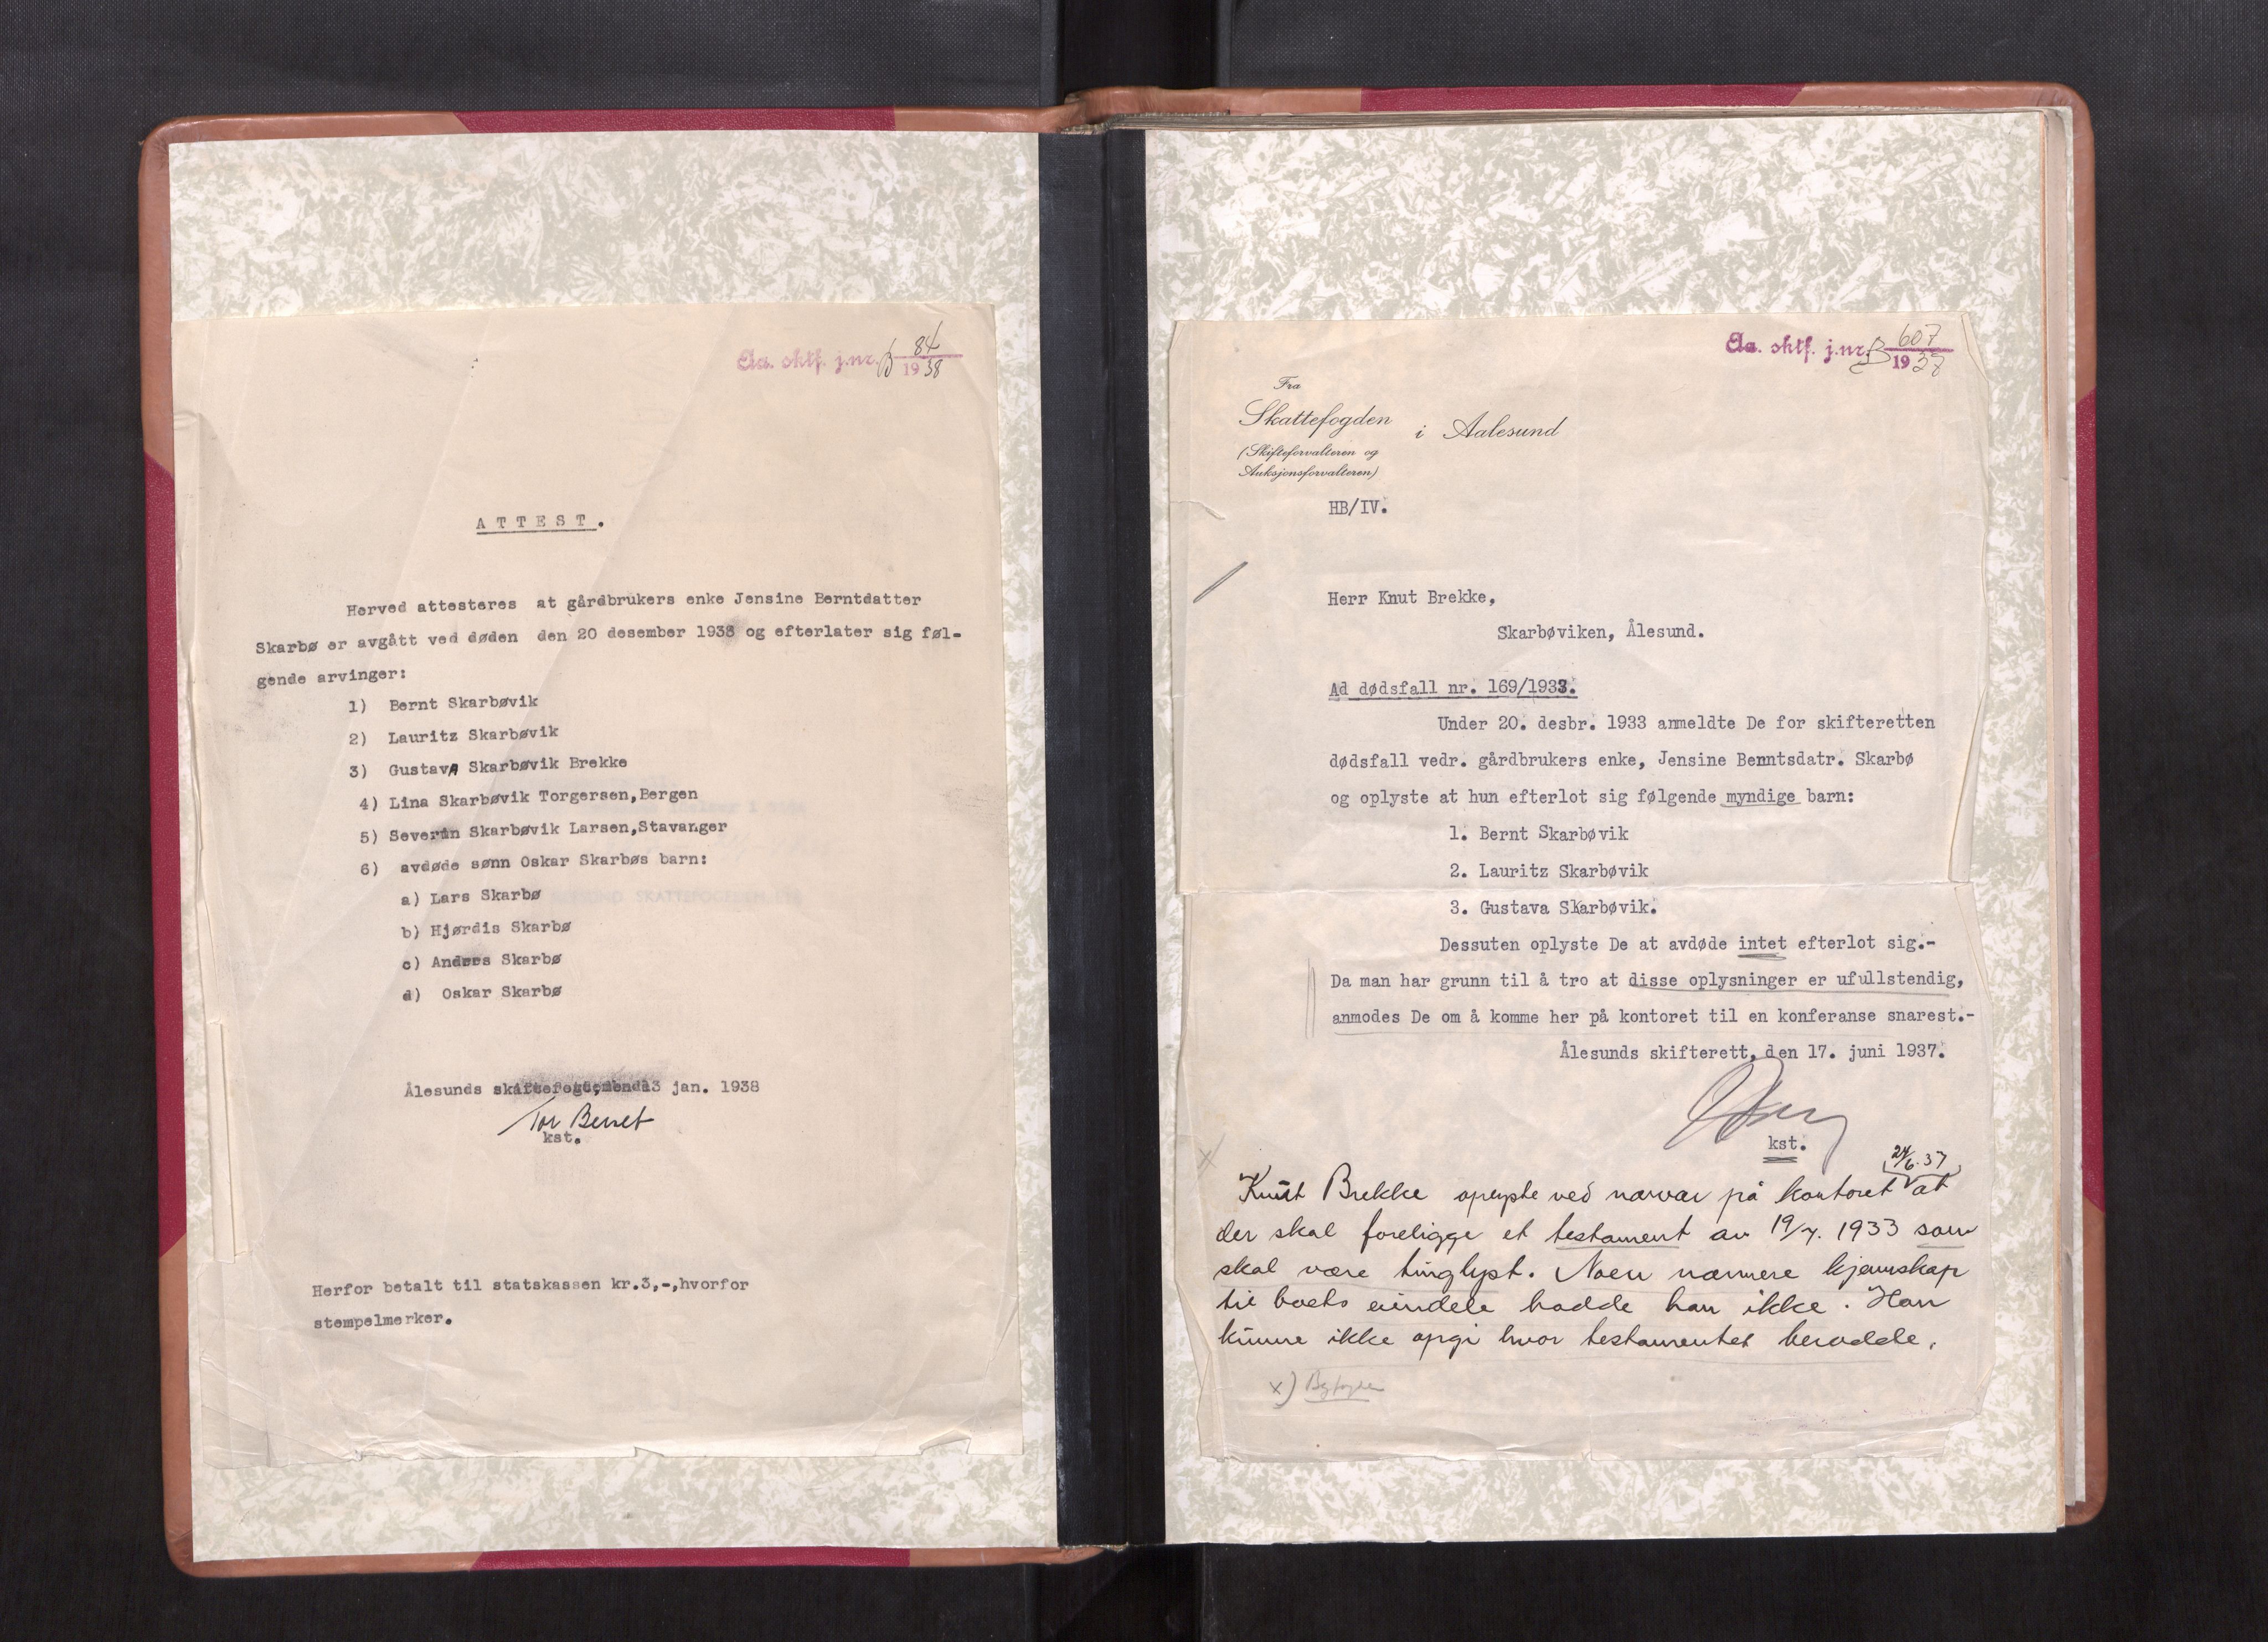 Aa. sktf. j.nr. B 84
1938
ATTEST.
Herved attesteres at gårdbrukers enke Jensine Berntdatter
Skarbø er avgått ved døden den 20 desember 1933 og efterlater sig føl-
gende arvinger:
1) Bernt Skarbøvik
2) Lauritz Skarbøvik
3) Gustava Skarbøvik Brekke
4) Lina Skarbøvik Torgersen,Bergen
5) Severin Skarbøvik Larsen,Stavanger
6) avdøde sønn Oskar Skarbøs barn:
a) Lars Skarbø
b) Hjørdis Skarbø
c) Anders Skarbø
d) Oskar Skarbø
Ålesunds 13 jan. 1938
Tor Berset
kst.
Herfor betalt til statskassen kr.3,-,hvorfor
stempelmerker.
Aa. sktf. j.nr. B 607
1937
Fra
Skattefogden i Aalesund
(Skifteforvalteren og
Auksjonsforvalteren)
HB/IV.
Herr Knut Brekke,
Skarbøviken, Ålesund.
Ad dødsfall nr. 169/1933.
Under 20. desbr. 1933 anmeldte De for skifteretten
dødsfall vedr. gårdbrukers enke, Jensine Benntsdatr. Skarbø
og oplyste at hun efterlot sig følgende myndige barn:
1. Bernt Skarbøvik
2. Lauritz Skarbøvik
3. Gustava Skarbøvik.
Dessuten oplyste De at avdøde intet efterlot sig.-
Da man har grunn til å tro at disse oplysninger er ufullstendig,
anmodes De om å komme her på kontoret til en konferanse snarest.-
Ålesunds skifterett, den 17. juni 1937.
kst.
24/6.37
Knut Brekke oplyste ved nærvær på kontoret at
der skal foreligge et testament av 19/7. 1933 som
skal være tinglyst. Noen nærmere kjennskap
til boets eiendele hadde han ikke. Han
kunne ikke opgi hvor testamentet berodde.
x) Byfogden